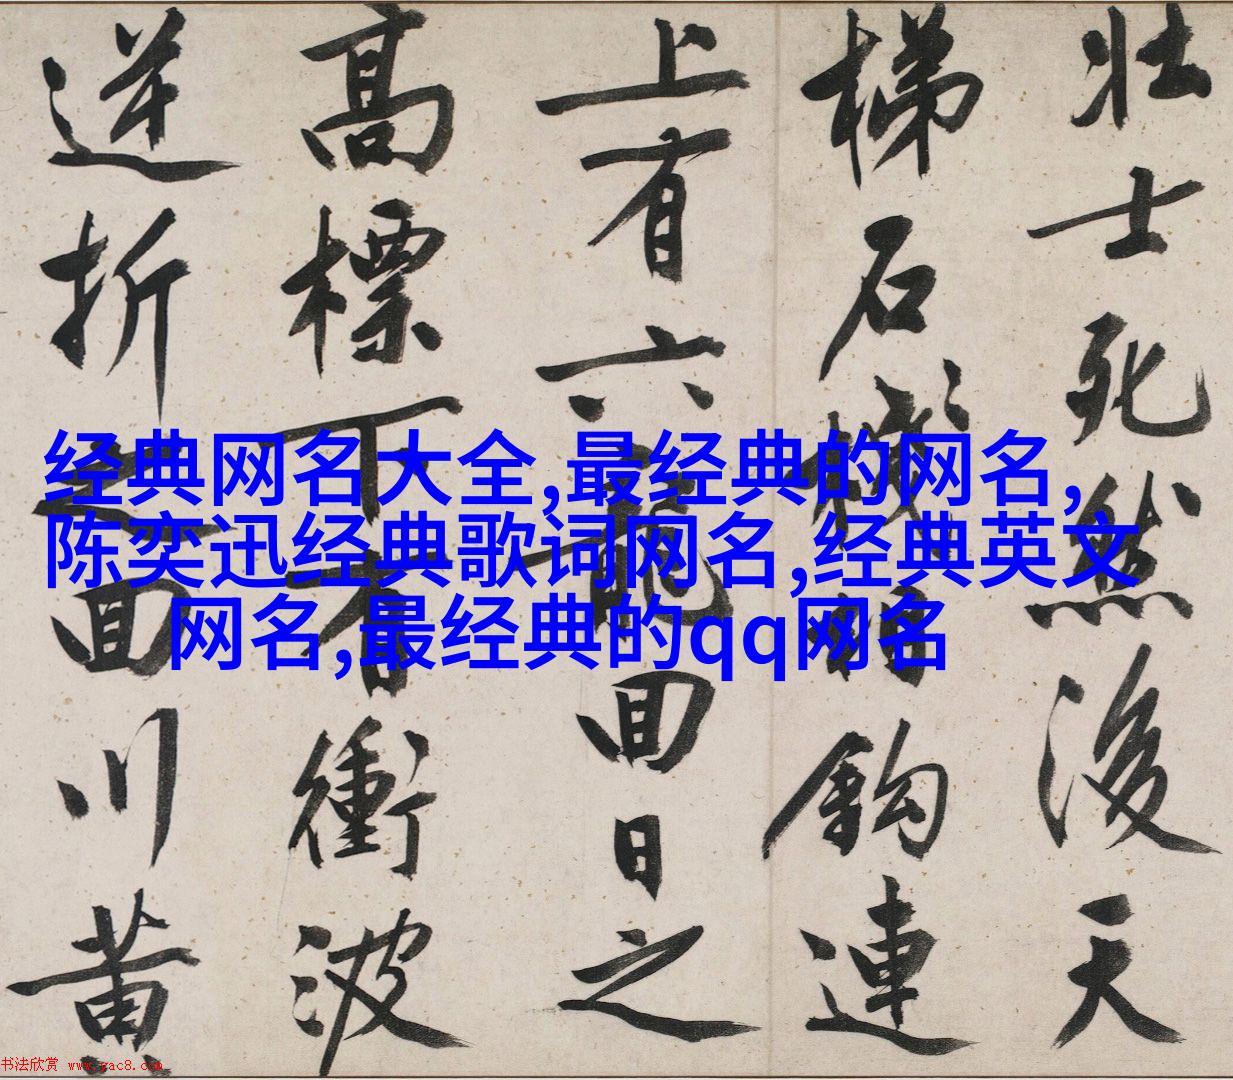 壮士死然後天
梯石棧相鈎連
上有六龍回日之
高標下有衝波
逆折之回川黄
经典网名大全,最经典的网名,
陈奕迅经典歌词网名,经典英文
网名,最经典的qq网名
书法欣赏 www.yac8.com